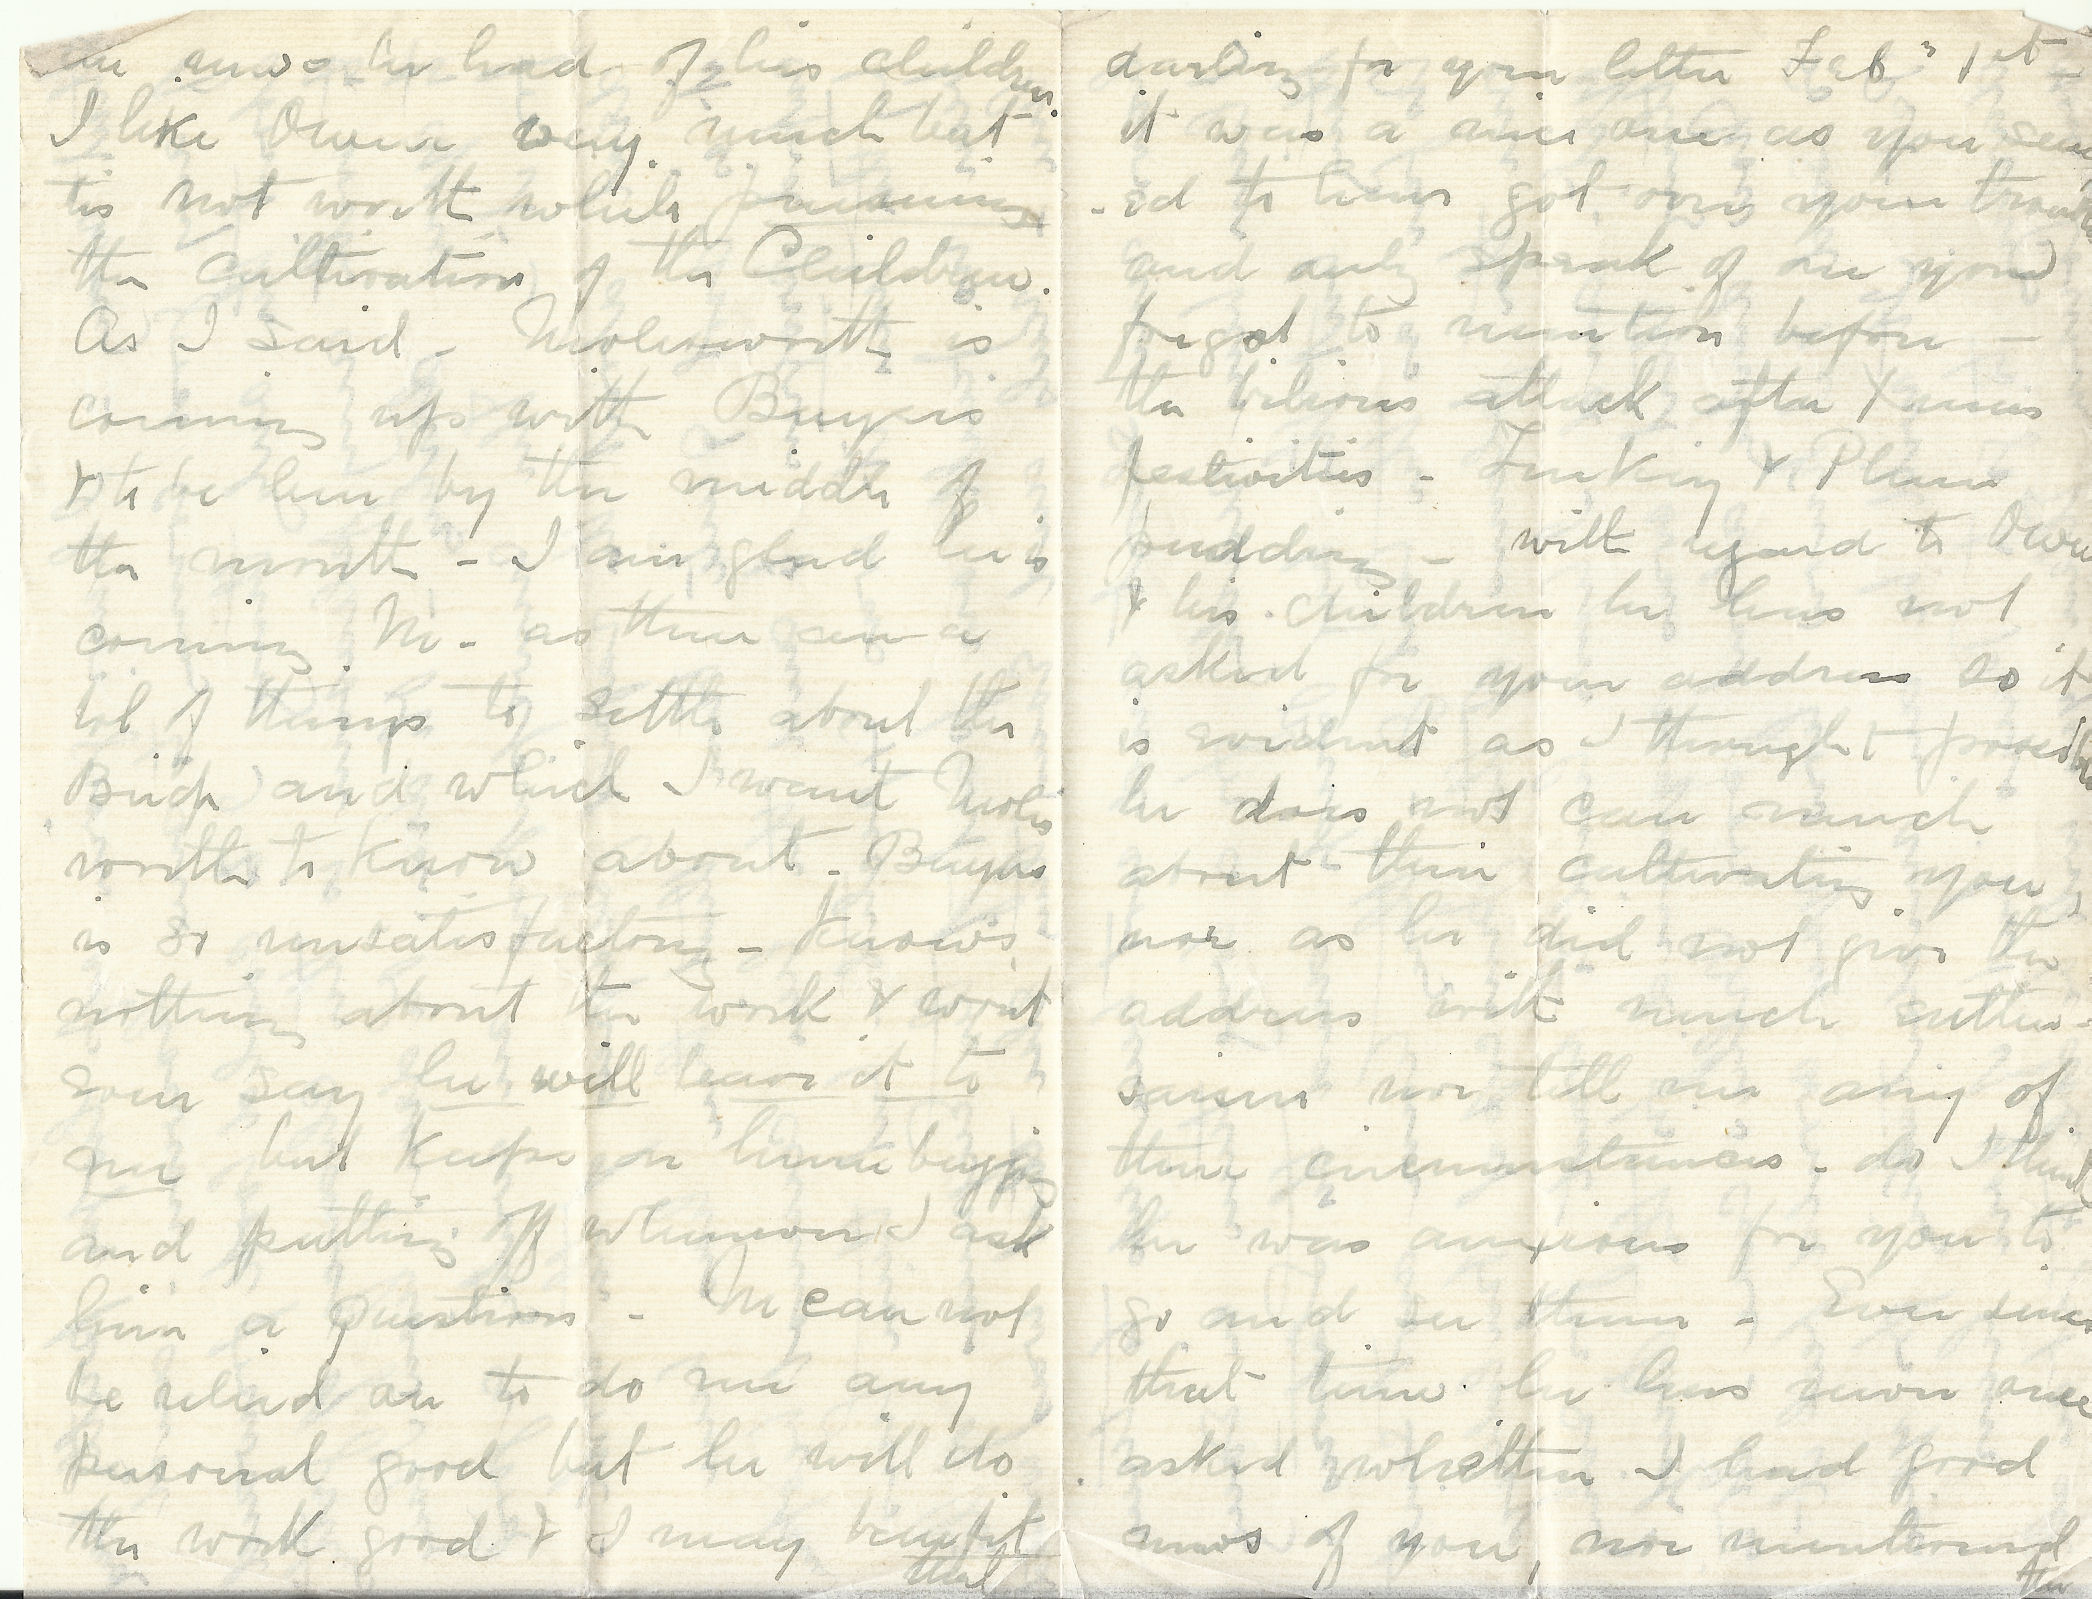 news he had of his children.
I like Owen very much but
tis not worth while pursuing
the cultivation of the Children.
As I said - Molesworth is
coming up with Buyers
& to be here by the middle of
the month - I am glad he is
coming M. as there are a
lot of things to settle about the
Bridge and which I want Moles
worth to know about. Buyers
is so unsatisfactory - Knows
nothing about the work & wont
even say he will leave it to
me but keeps on humbugging
and putting off whenever I ask
him a question - M can not
be relied on to do me any
personal good but he will do
the work good & I may benefit
that
darling for your letter Feb" 1st -
it was a nice one as you seem
-ed to have got over your troubles
and only speak of one you'd
forgot to mention before -
the bilious attack after Xmas
festivities - Turkey & Plum
pudding - with regard to Owen
& his children he has not
asked for your address so it
is evident as I thought possible
he does not care much
about their cultivating you,
nor as he did not give the
address with much enthu-
siasm nor tell me any of
their circumstances - do I think
he was anxious for you to
go and see them - Ever since
that time he has never once
asked whether I had good
news of you, nor mentioned
the